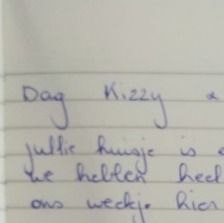 Dag Kizzy &
jullie huisje is
we hebben heel
ons weekje hier